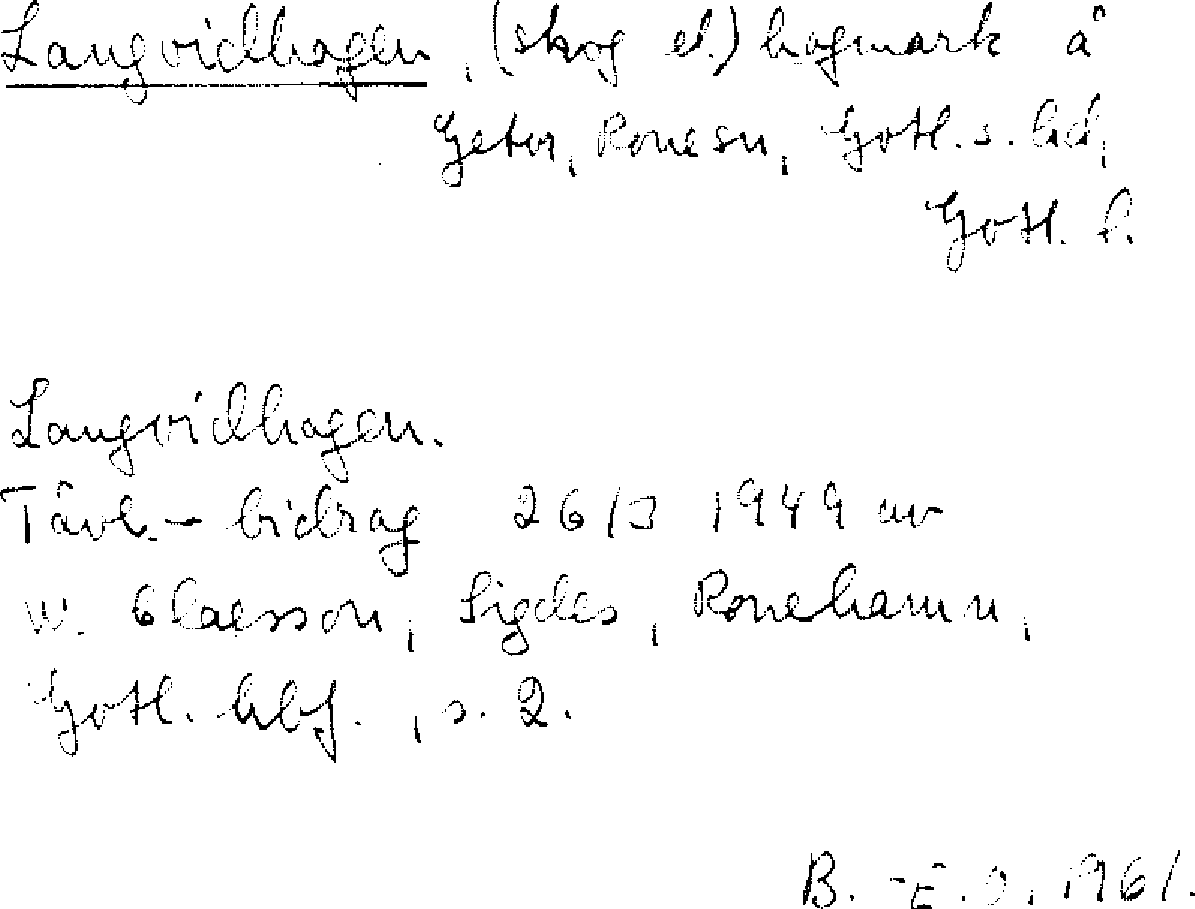 Langvidhagen, (skog el.) hagmark å
Geter, Rone sn, Gotl. s. hd,
Gotl. l.
Langvidhagen.
Tävl.-bidrag 26/3 1949 av
W. Claesson, Sigdes, Ronehamn,
Gotl. hbf., s. 2.
B.-E. O. 1961.